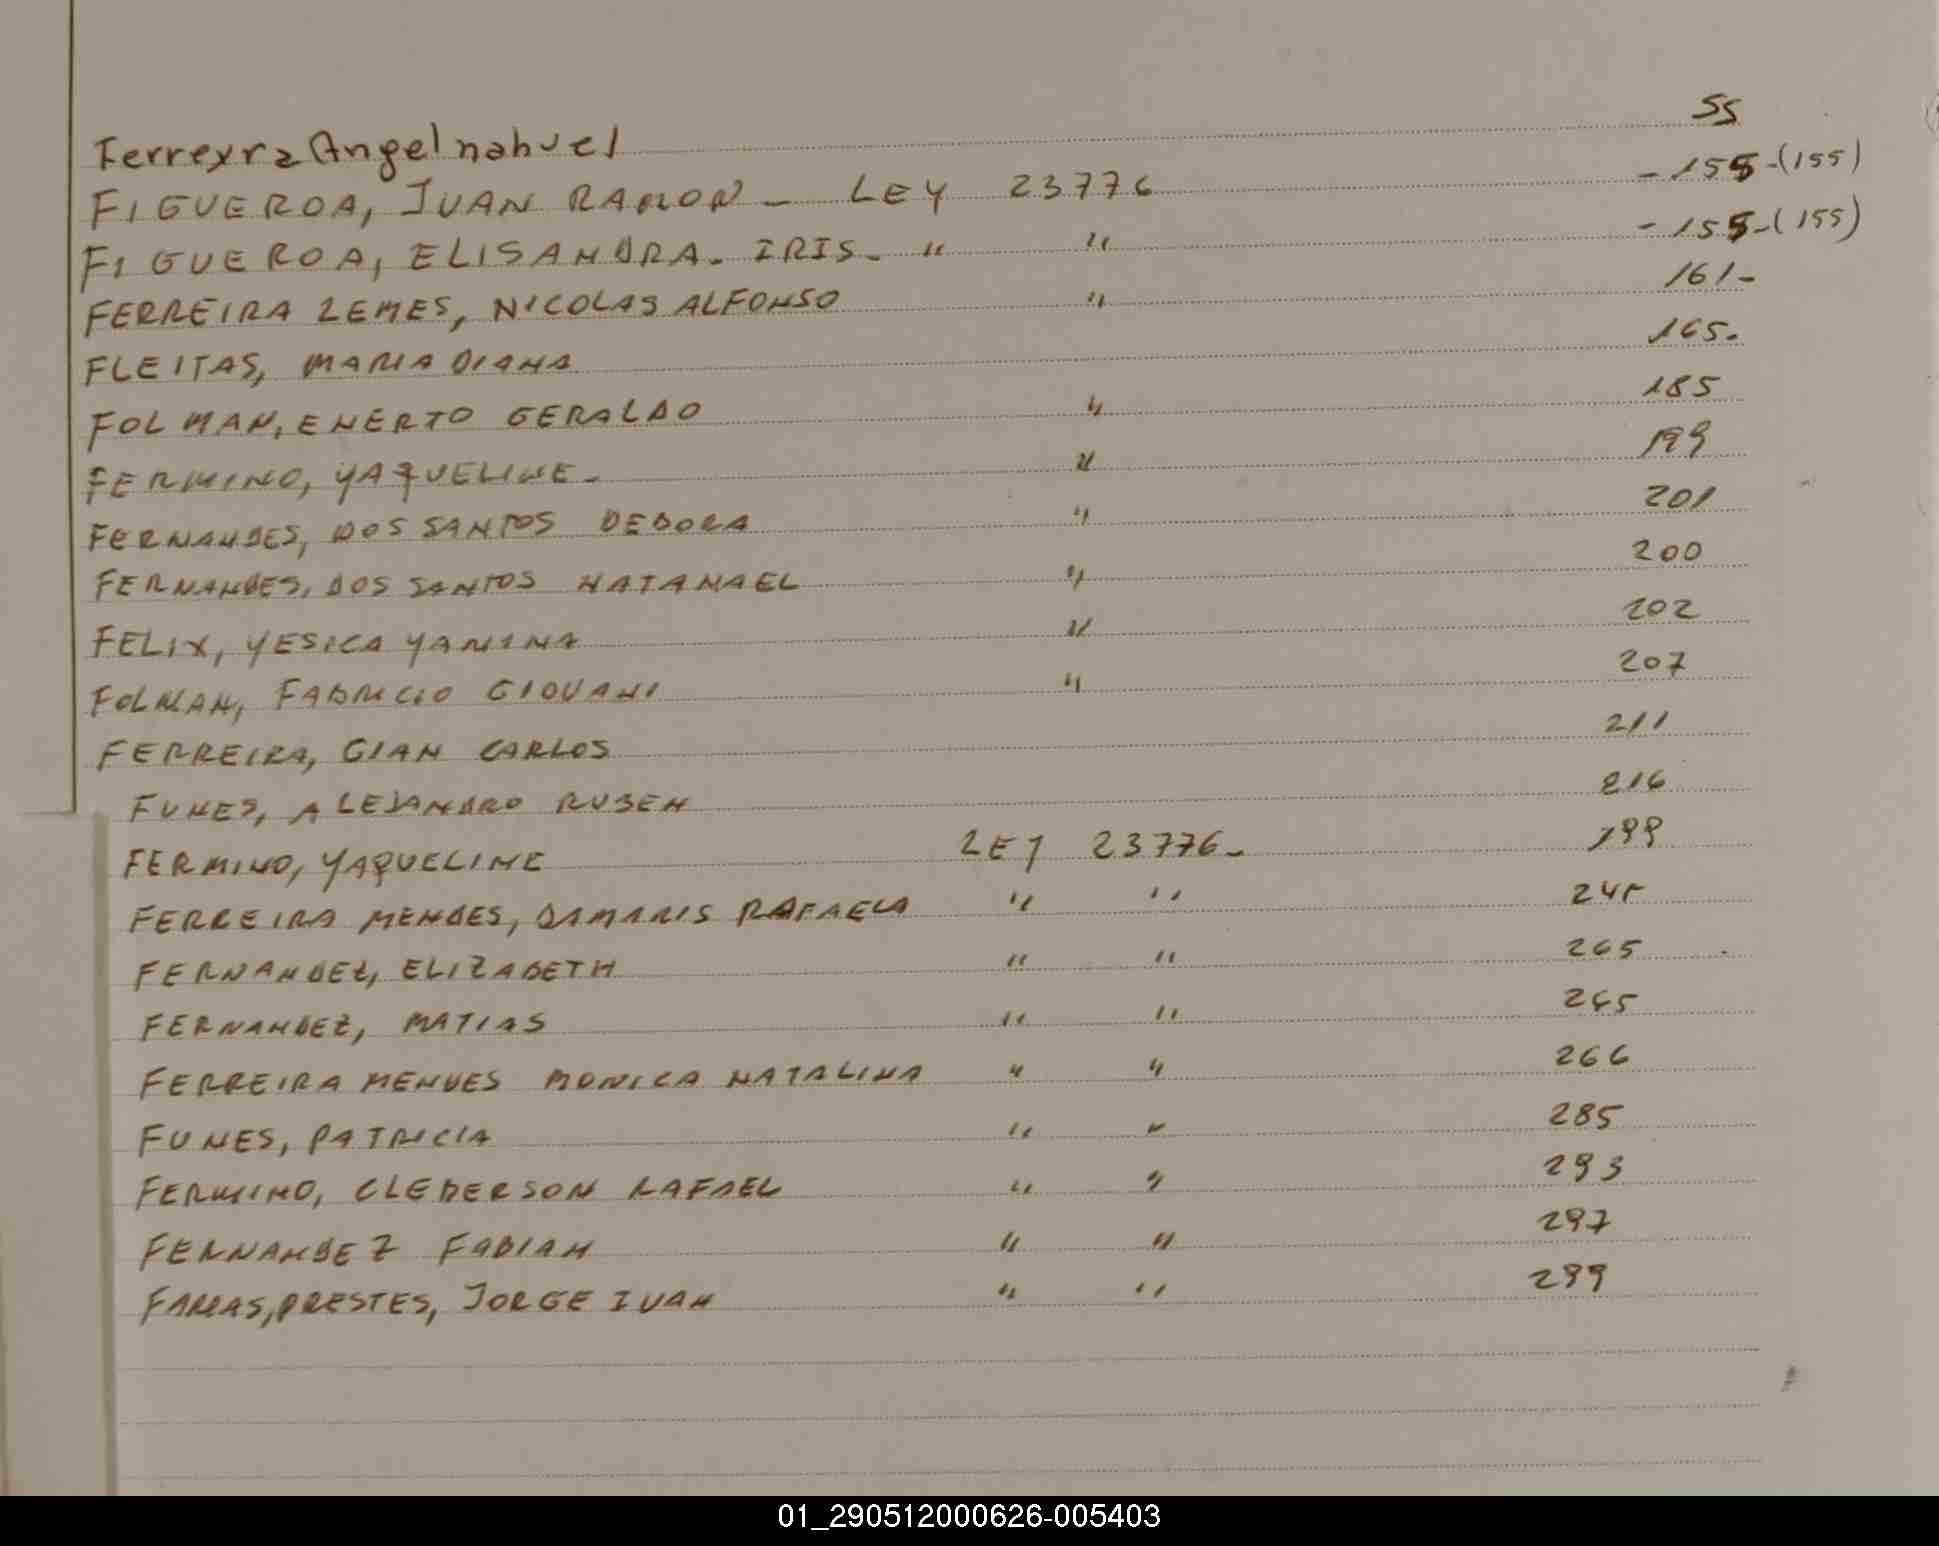 Ferreyra Angel nahuel 55
FIGUEROA, JUAN RAMON - LEY 23776 - 155 - (155)
FIGUEROA, ELISANDRA. IRIS. " " - 155 - (155)
FERREIRA LEMES, NICOLAS ALFONSO " 161-
FLEITAS, MARIA DIANA 165.
FOLMAN, ENERTO GERALDO " 185
FERMINO, YAQUELINE - " 199
FERNANDES, DOS SANTOS DEBORA " 201
FERNANDES, DOS SANTOS NATANAEL " 200
FELIX, YESICA YANINA " 202
FOLMAN, FABRICIO GIOVANI " 207
FERREIRA, GIAN CARLOS 211
FUNES, ALEJANDRO RUBEN 216
FERMINO, YAQUELINE LEY 23776- 199
FERREIRA MENDES, DAMARIS RAFAELA " " 245
FERNANDEZ, ELIZABETH " " 265
FERNANDEZ, MATIAS " " 265
FERREIRA MENDES MONICA NATALINA " " 266
FUNES, PATRICIA " " 285
FERMINO, CLEBERSON RAFAEL " " 293
FERNANDEZ FABIAN " " 297
FARIAS, PRESTES, JORGE IVAN " " 299
01_290512000626-005403